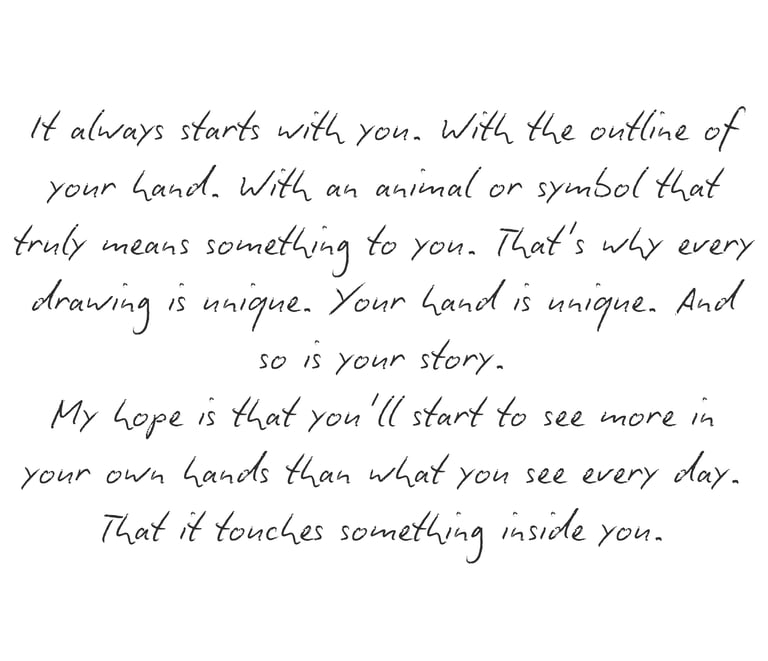 It always starts with you. With the outline of
your hand. With an animal or symbol that
truly means something to you. That's why every
drawing is unique. Your hand is unique. And
so is your story.
My hope is that you'll start to see more in
your own hands than what you see every day.
That it touches something inside you.